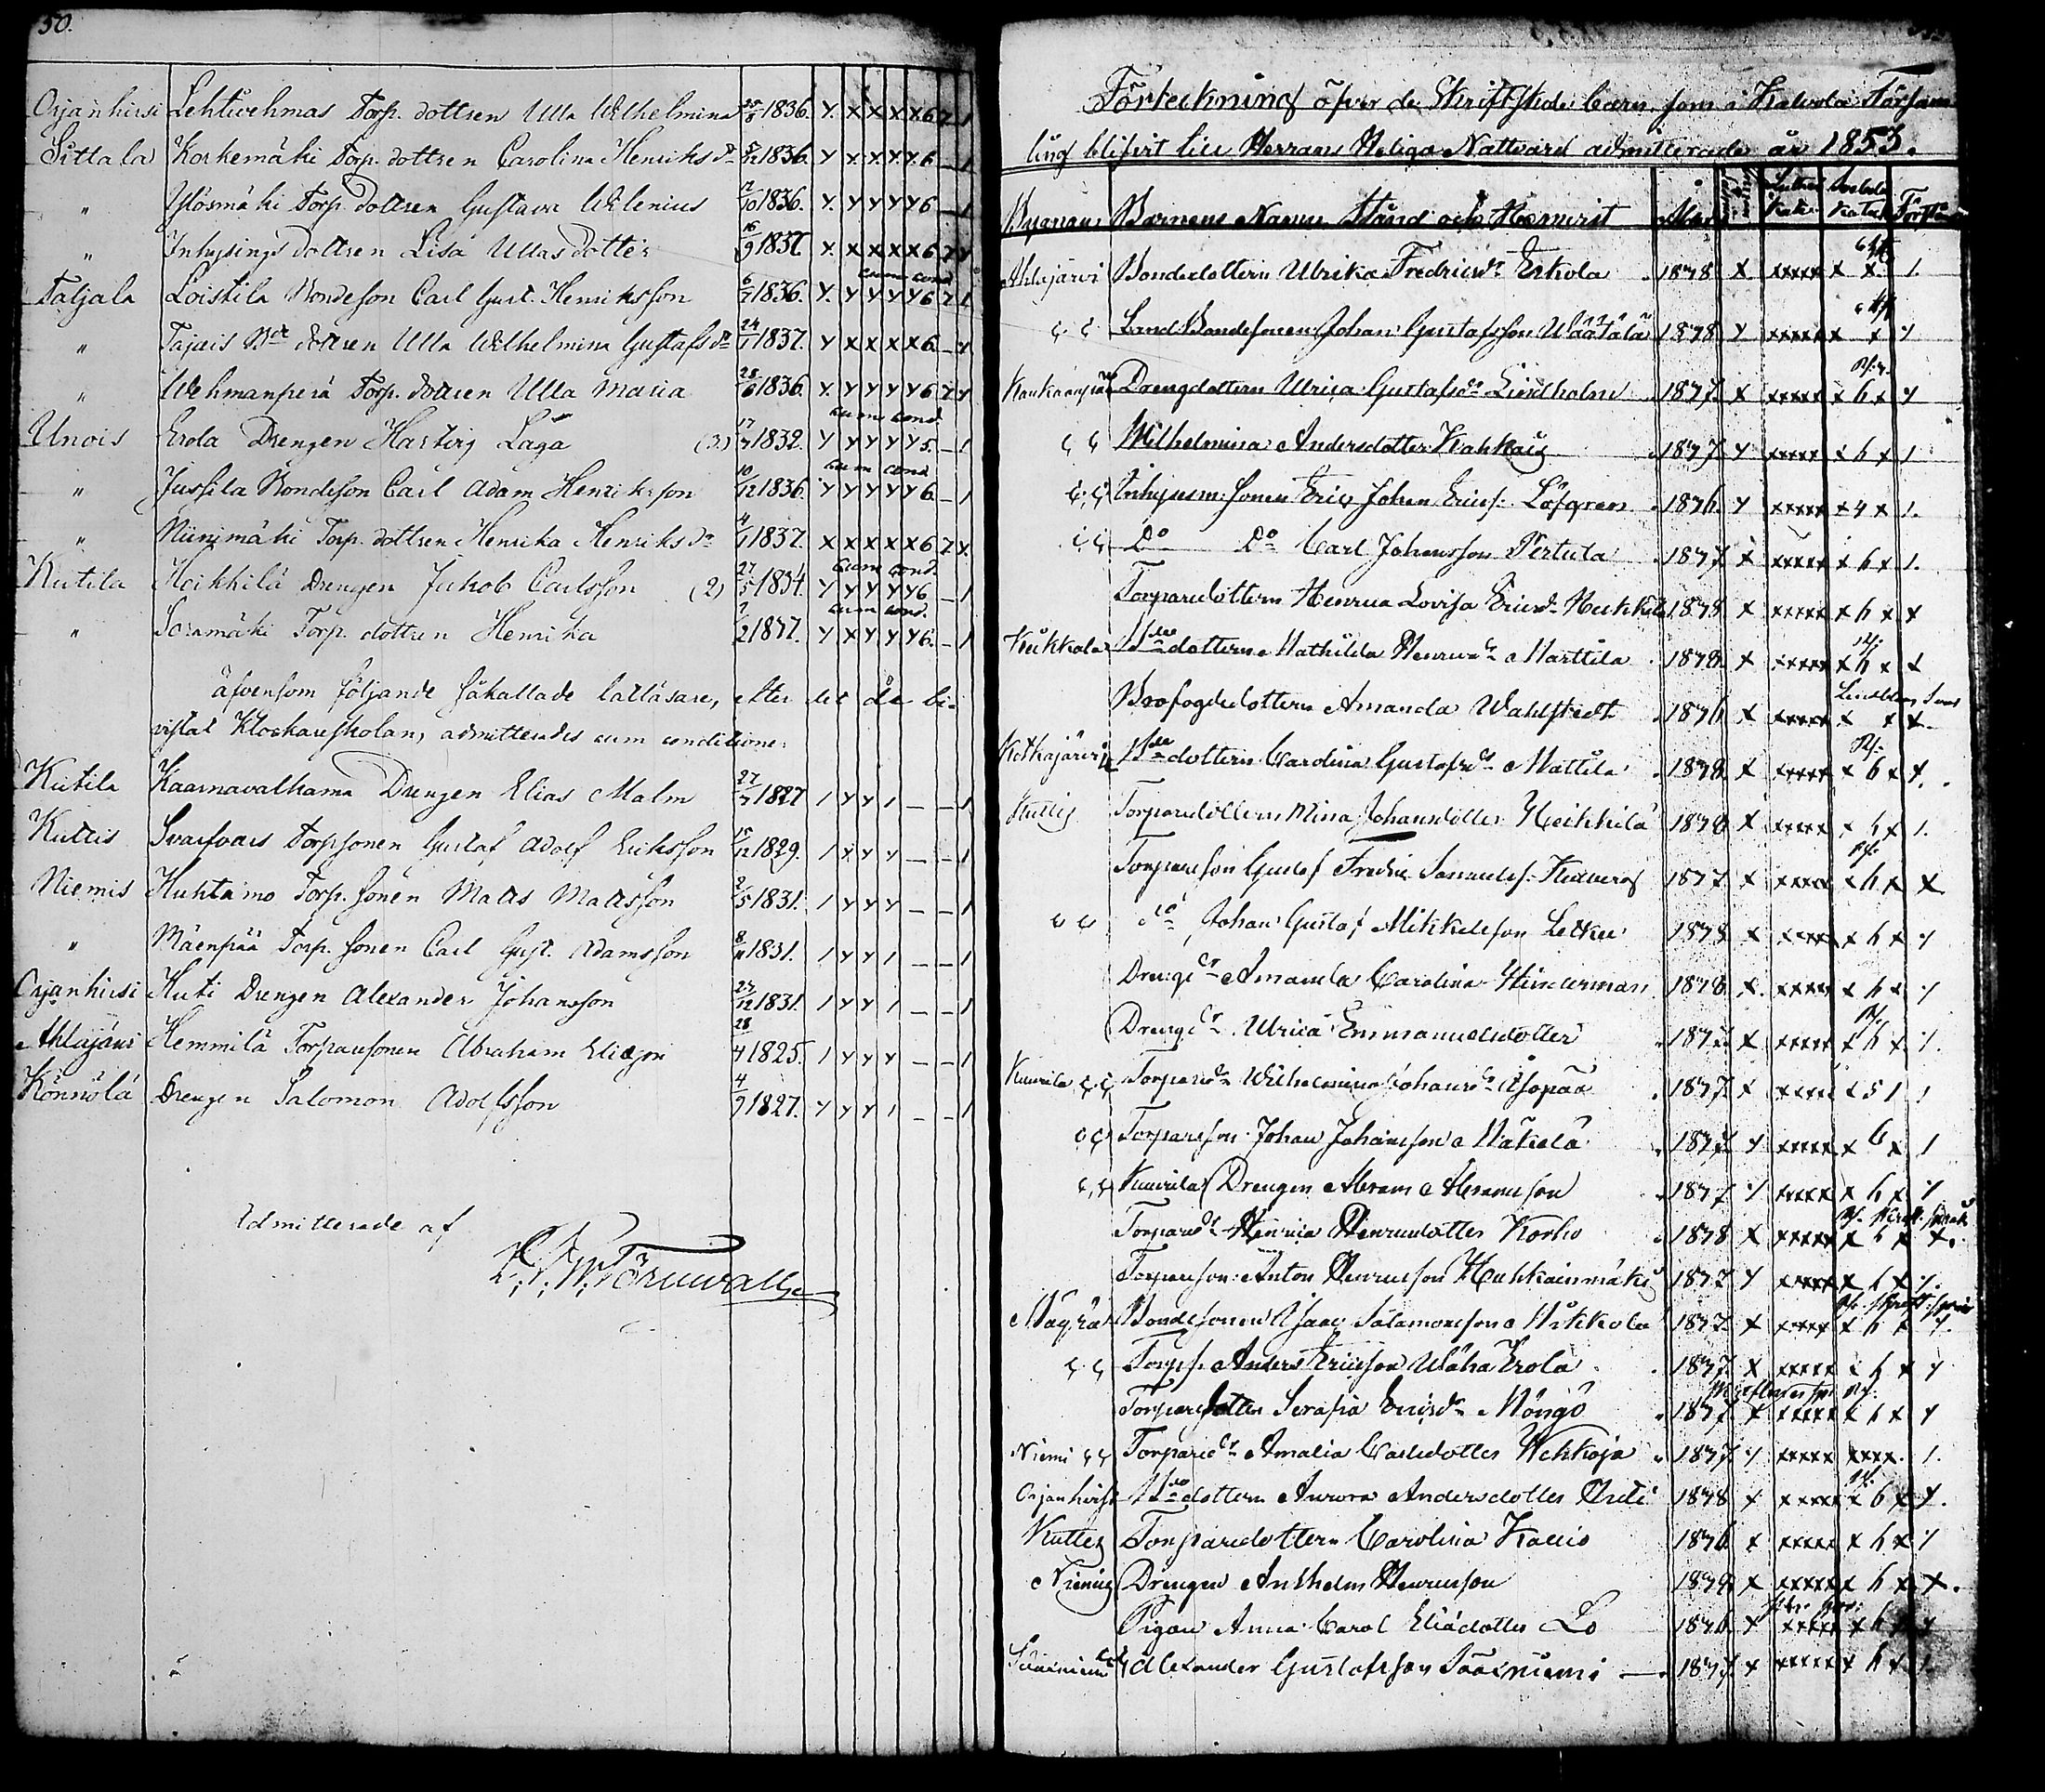 50.
Orjanhirsi Lehtivehmas Torp. dottren Ulla Wilhelmina 25/5 1836. Y. X X X X 6 7 1
Sittala Korkemäki Torp. dottren Carolina Henriksdr 1836. Y X X Y Y 6 – 1
" Ylösmäki Torp. dottren Gustava Wilenius 12/10 1836. Y. Y Y Y Y 6 – 1
" Inhysings dottren Lisa Ullasdotter 16/9 1837. Y. X X X X 6 7 Y
cum cond
Taljala Loistila Bondeson Carl Gust. Henriksson 6/7 1836. Y. Y Y Y Y 6 7 1
" Tajais Bde dottren Ulla Wilhelmina Gustafsdr 24/1 1837. Y X X X X 6 – Y
" Wehmanperä Torp. dottren Ulla Maria 28/6 1836. Y. Y Y Y Y 6 7 Y
cum cond.
Unois Erola Drengen Hartvig Laga (3) 17/7 1832. Y Y Y Y Y 5. – 1
cum cond
" Jussila Bondeson Carl Adam Henriksson 10/12 1836. Y Y Y Y Y 6. – 1
" Niinimäki Torp. dottren Henrika Henriksdr 4/1 1837. X X X X X 6 7 Y.
cum cond.
Kutila Heikkilä Drengen Jakob Carlsson (2) 27/5 1834. Y Y Y Y Y 6 – 1
cum cond.
" Soramäki Torp. dottren Henrika 7/2 1837. Y X Y Y Y 6. – 1
äfvensom följande såkallade latläsare, efter det de bi-
vistat Klockareskolan, admitterades cum conditione:
Kutila Kaarnavalkama Drengen Elias Malm 27/7 1827 1 Y Y 1 – – 1
Kuttis Svarfvars Torpsonen Gustaf Adolf Eriksson 15/12 1829. 1 Y Y Y – – 1
Niemis Huhtamo Torp. sonen Matts Mattsson 2/5 1831. 1 Y Y Y – – 1
" Mäenpää Torp. sonen Carl Gust. Adamsson 8/11 1831. 1 Y Y 1 – – 1
Orjanhirsi Huti Drengen Alexander Johansson 27/12 1831. 1 Y Y 1 – – 1
Ahlajärvi Hemmilä Torparesonen Abraham Eliasson 28/4 1825. 1 Y Y Y – – 1
Könnölä Drengen Salomon Adolfsson 4/9 1827. Y Y Y 1 – – 1
Admitterade af
Törnwall
Förteckning öfver de Skriftskole barn, som i Kalvola Försam
ling blifvit till Herrans Heliga Nattvard admitterade år 1853.
Byanamn Barnens Namn Stånd och Hemvist
Ahlajärvi Bondedottern Ulrika Fredricsdr Erkola 1838 X xxxxx x x 1.
" Land Bondesonen Johan Gustafsson Wäätälä 1838 Y xxxxx x x Y
Drengdottern Ulrica Gustafsdr Lindholm 1837. X xxxxx x 6 x Y
" Wilhelmina Andersdotter Kahkais 1837 Y xxxxx x 6 x 1
" Inhysesm. sonen Eric Johan Ericss. Löfgren 1836. Y xxxxx x 4 x 1.
" Do Do Carl Johansson Pertula 1837 X xxxxx x 6 x 1.
Torparedottern Henrica Lovisa Ericsdr Heikkilä 1838 X xxxxx x 6 x x
Keikkala Bdedottern Mathilda Henricsdr Marttila 1838 X xxxxx x 6 x x
Brofogdedottern Amanda Wahlstedt 1836 X xxxxx x x x
Kotkajärvi Bdedottern Carolina Gustafsdr Mattila 1838 X xxxxx x 6 x Y.
Kuttis Torparedottern Mina Johansdotter Heikkilä 1838 X xxxxx x 6 x 1.
Torpareson Gustaf Fredric Samuelss. 1837 X xxxxx x 6 x X
" do Johan Gustaf Mikkelsson Letku 1838 X xxxxx x 6 x Y
Drengdr Amanda Carolina Hinderman 1838 X xxxxx x 6 x Y
Drengdr Ulrica Emmanuelsdotter 1837. X xxxxx x 6 x Y.
Kuurila " Torparedr Wilhelmina Johansdr Isopää 1837. X xxxxx x 5 1 1
" Torpareson Johan Johansson Mäkelä 1837 Y xxxxx x 6 x 1
" Kuurila Drengen Abram Abramsson 1837 Y xxxxx x 6 x Y
Torparedr Henrica Henricsdotter Korho 1838 X xxxxx x 6 x x.
Torpareson Anton Henricsson Huhkainmäki 1837 Y xxxxx x 6 x Y.
Bondesonen Isaac Salamonsson Mikkola 1837. X xxxxx x 6 x Y.
" Torps. Anders Ericsson Wäha Erola 1837. X xxxxx x 6 x Y
Torparedotter Serafia Ericsdr 1837. X xxxxx x 6 x Y
Niemi " Torparedr Amalia Carlsdotter Wehkoja 1837. Y xxxxx xxxx. 1.
Orjanhirsi Bdedottern Aurora Andersdotter Huti 1838 Y xxxxx x 6 x Y.
Kuttis Torparedottern Carolina Kallio 1836 x xxxxx x 6 x Y
Niemis Drengen Anshelm Henricsson 1838 X xxxxx x 6 x x.
Pigan Anna Carol Eliaedotter Lo 1836 Y xxxxx x 6 x Y
Sääxniemi Alexander Gustafsson Sääxniemi — 1837 x xxxxx x 6 x 1.